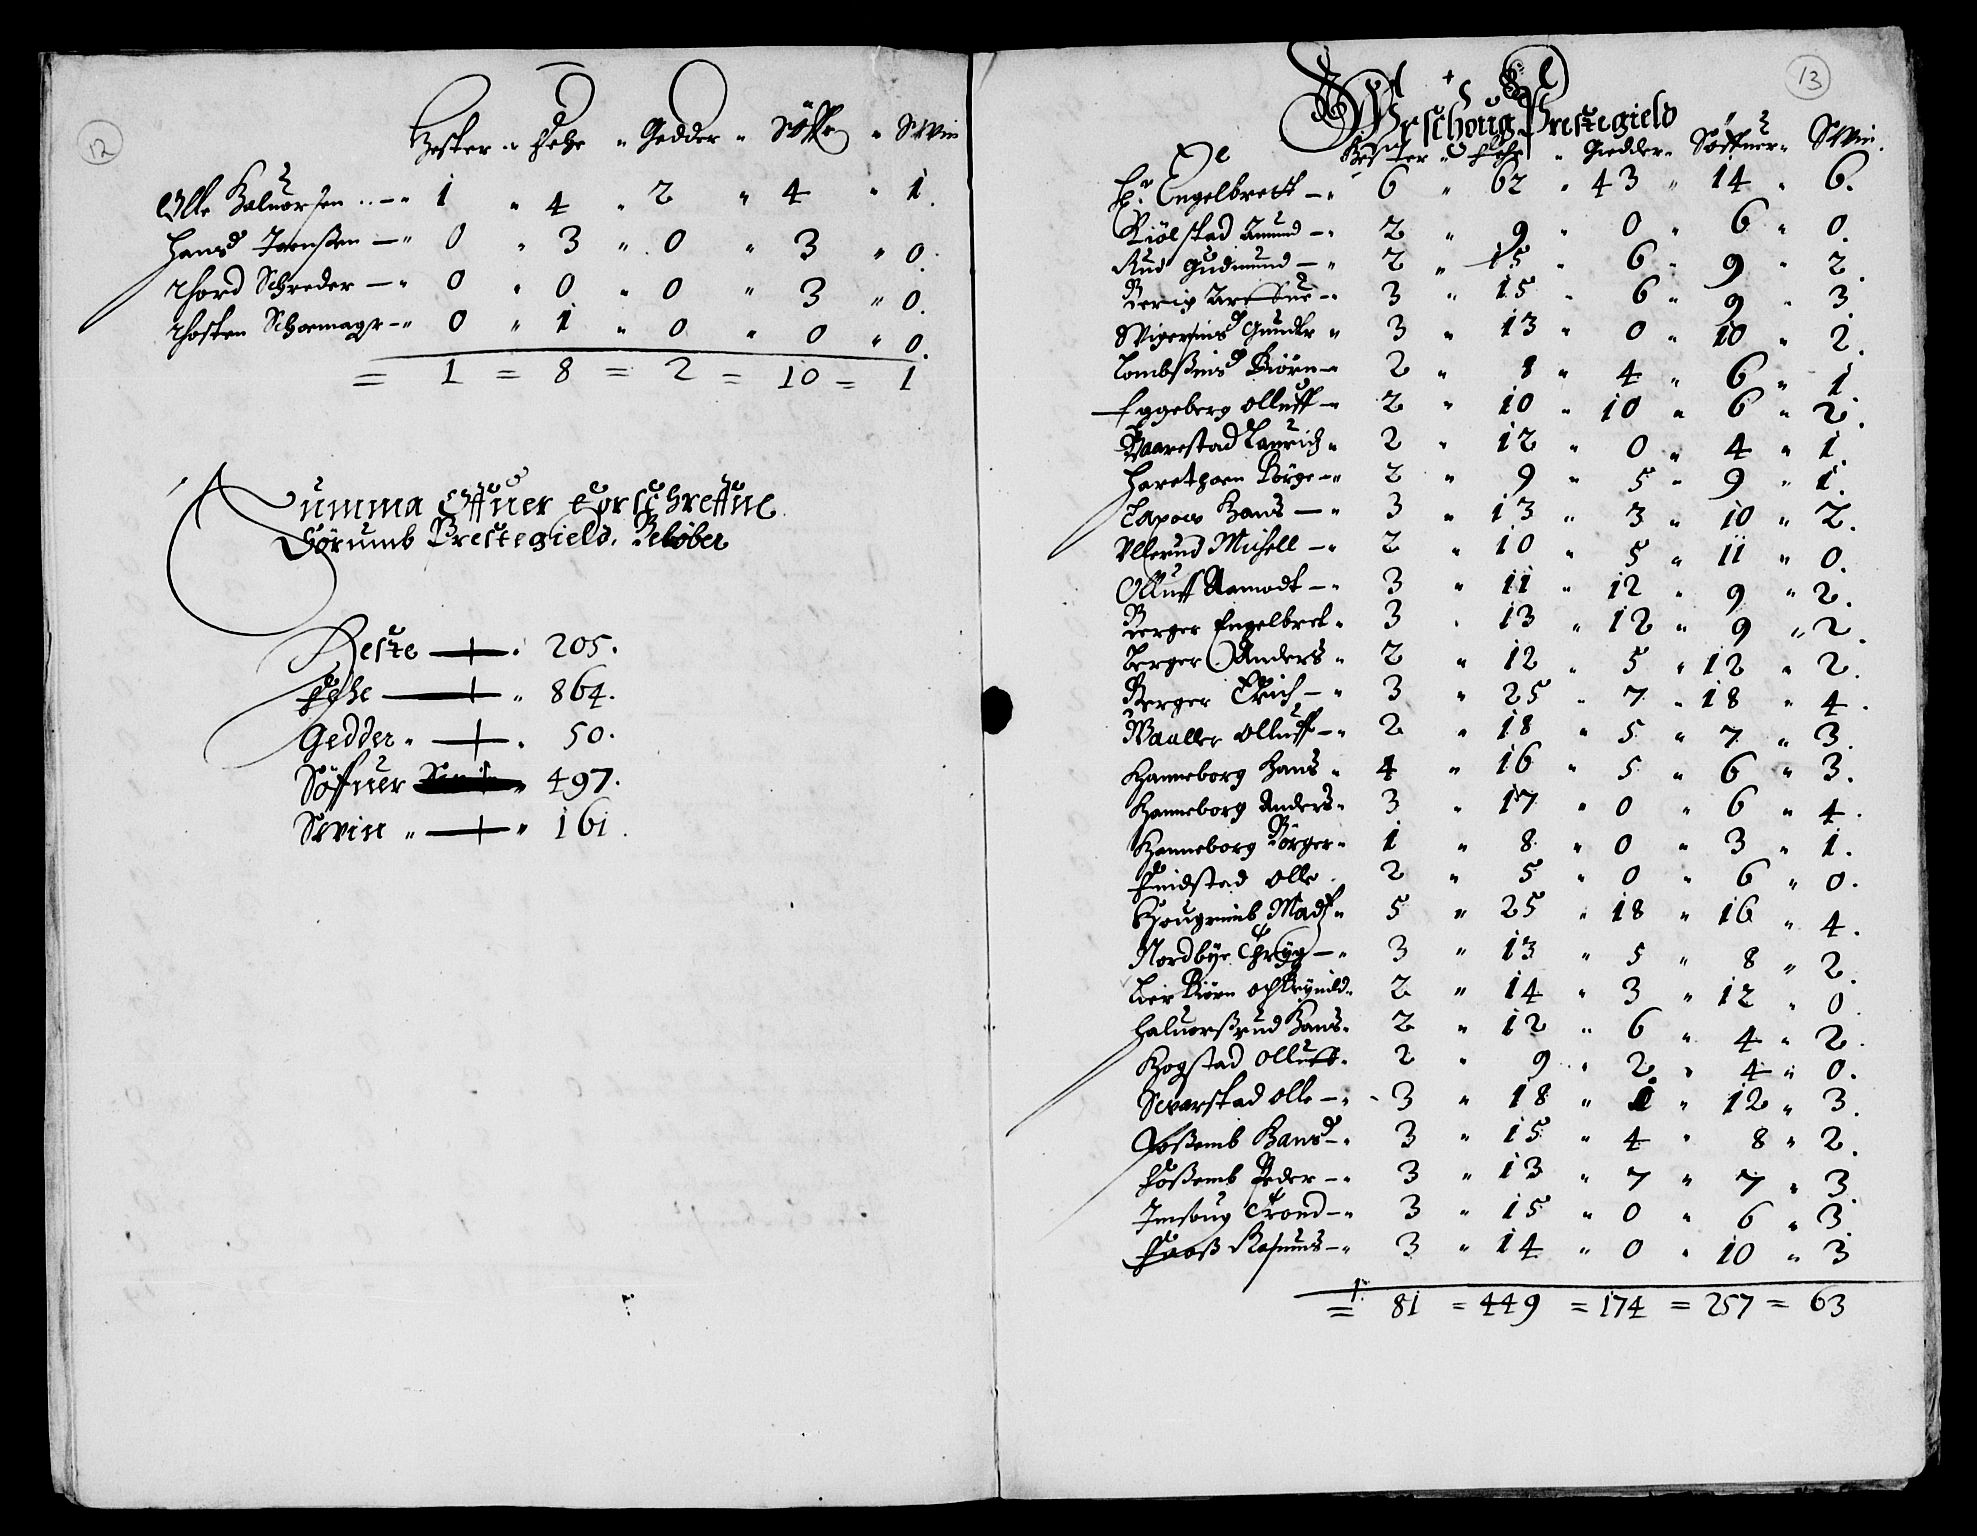 12
Hester " Fehe " Gedder " Söffr " Swin
Olle Haluorsen " 1 " 4 " 2 " 4 " 1.
Hans Joenßen " 0 " 3 " 0 " 3 " 0.
Thord Schreder " 0 " 0 " 0 " 3 " 0.
Thosten Schoemagr " 0 " 1 " 0 " 0 " 0.
= 1 = 8 = 2 = 10 = 1
Summa Offuer forschreffne
Sörumb Prestegields Beløber
Heste 205.
Fehe " 864.
Gedder " " 50.
Söffuer " 497.
Swin " " 161.
13
Urschoug Prestegield
Hester " Fehe " Giedder " Söffuer " Swin.
Hr: Engelbrett " 6 " 62 " 43 " 14 " 6.
Kiölstad Amund " 2 " 9 " 0 " 6 " 0.
Rud Gudmund " 2 " 15 " 6 " 9 " 2.
3 " 15 " 6 " 9 " 3.
Gundr " 3 " 13 " 0 " 10 " 2.
Biörn " 2 " 8 " 4 " 6 " 1.
Eggeberg Olluff " 2 " 10 " 10 " 6 " 2.
Laurich " 2 " 12 " 0 " 4 " 1.
Börge " 2 " 9 " 5 " 9 " 1.
Hans " 3 " 13 " 3 " 10 " 2.
Ullerud Michell " 2 " 10 " 5 " 11 " 0.
Olluff Aamodt " 3 " 11 " 12 " 9 " 2.
Berger Engelbret " 3 " 13 " 12 " 9 " 2.
Berger Anders " 2 " 12 " 5 " 12 " 2.
Berger Erich " 3 " 25 " 7 " 18 " 4.
Waaller Olluff " 2 " 18 " 5 " 7 " 3.
Hanneborg Hans " 4 " 16 " 5 " 6 " 3.
Hanneborg Anders " 3 " 17 " 0 " 6 " 4.
Hanneborg Börger " 1 " 8 " 0 " 3 " 1.
Finstad Olle " 2 " 5 " 0 " 6 " 0.
Madß " 5 " 25 " 18 " 16 " 4.
Nordbye Thryg " 3 " 13 " 5 " 8 " 2.
Lier Biörn och 2 " 14 " 3 " 12 " 0
Haluorßrud Hans " 2 " 12 " 6 " 4 " 2.
Hogstad Olluff " 2 " 9 " 2 " 4 " 0.
Swarstad Olle " 3 " 18 " 1 " 12 " 3.
Foßemb Hans " 3 " 15 " 4 " 8 " 2.
Foßemb Peder " 3 " 13 " 7 " 7 " 3.
Trond " 3 " 15 " 0 " 6 " 3.
Rasmus " 3 " 14 " 0 " 10 " 3
= 81 = 449 = 174 = 257 = 63